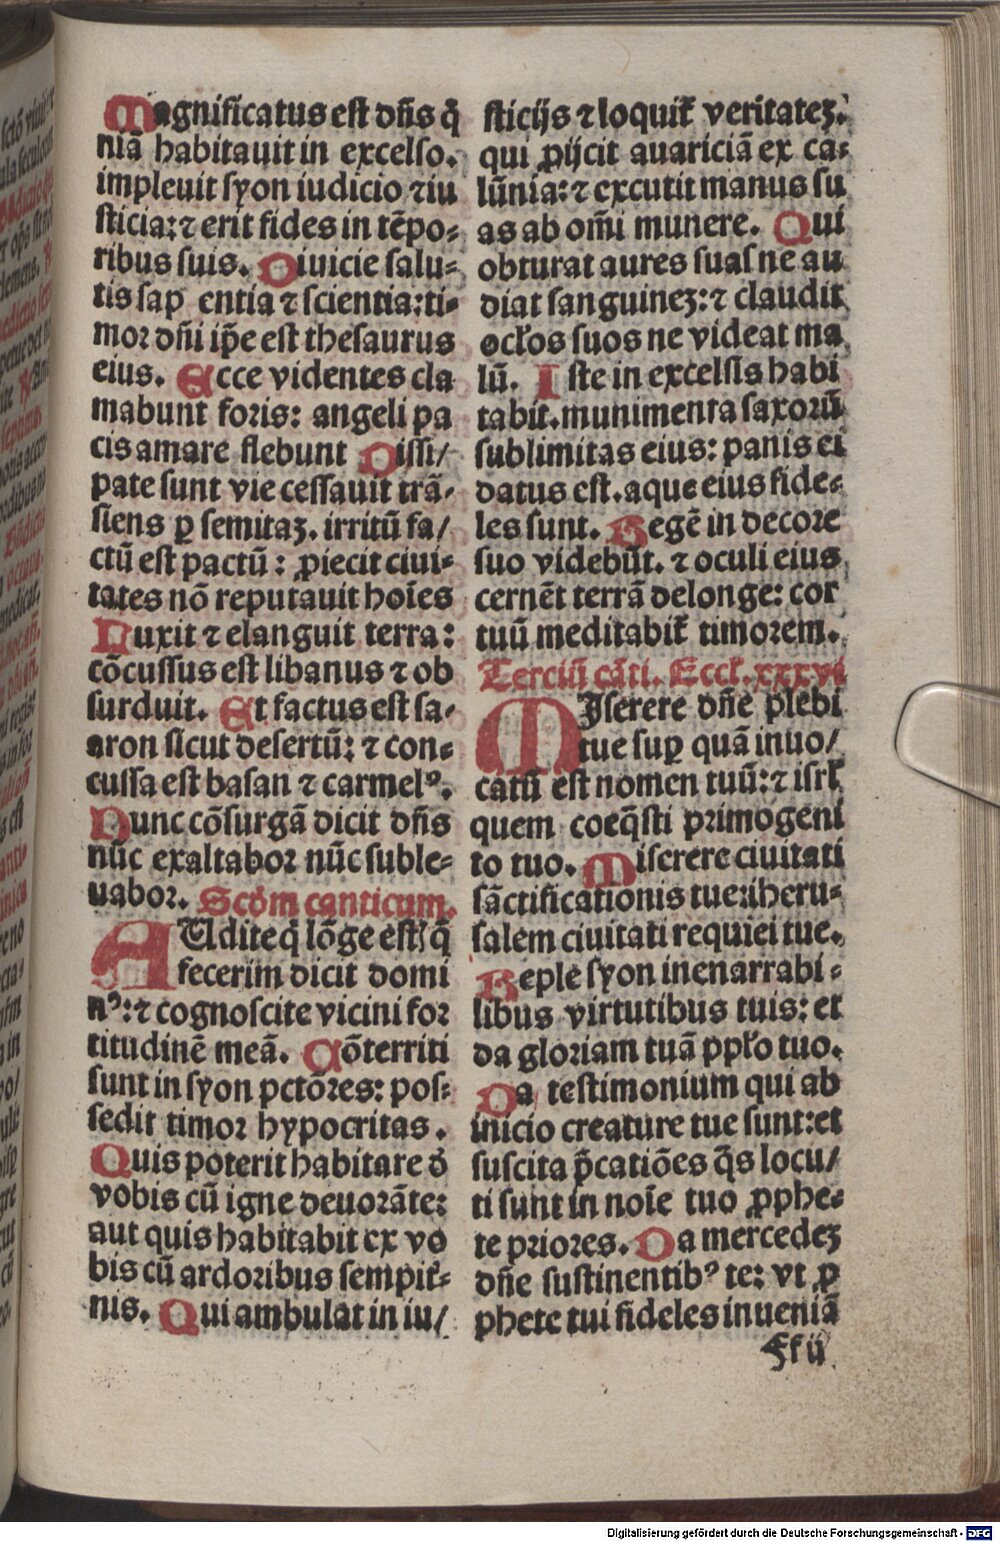 Magnificatus est dñs q̃
niã habitauit in excelso.
impleuit syon iudicio ⁊ iu
sticia: ⁊ erit fides in tẽpo-
ribus suis. Diuicie salu-
tis sap entia ⁊ scientia: ti-
mor dñi ip̃e est thesaurus
eius. Ecce videntes cla
mabunt foris: angeli pa
cis amare flebunt Dissi/
pate sunt vie cessauit trã-
siens ꝑ semitaꝫ. irritũ fa/
ctũ est pactũ: ꝓiecit ciui-
tates nõ reputauit hoĩes
Luxit ⁊ elanguit terra:
cõcussus est libanus ⁊ ob
surduit. Et factus est sa-
aron sicut desertũ: ⁊ con-
cussa est basan ⁊ carmelꝰ.
Nunc cõsurgã dicit dñs
nũc exaltabor nũc suble-
uabor. Scđm canticum.
AUdite q̃ lõge estꝭ q̃
fecerim dicit domi
nꝰ: ⁊ cognoscite vicini for
titudinẽ meã. Cõterriti
sunt in syon pctõres: pos-
sedit timor hypocritas.
Quis poterit habitare đ
vobis cũ igne deuorãte:
aut quis habitabit ex vo
bis cũ ardoribus sempit̃-
nis. Qui ambulat in iu/
sticijs ⁊ loquit̃ veritateꝫ.
qui ꝓijcit auariciã ex ca-
lũnia: ⁊ excutit manus su
as ab om̃i munere. Qui
obturat aures suas ne au
diat sanguineꝫ: ⁊ claudit
ocłos suos ne videat ma
lũ. Iste in excelsis habi
tabit. munimenta saxorũ
sublimitas eius: panis ei
datus est. aque eius fide-
les sunt. Regẽ in decore
suo videbũt. ⁊ oculi eius
cernẽt terrã delonge: cor
tuũ meditabit̃ timorem.
Terciũ cãti. Eccł. xxxvi
MIserere dñe plebi
tue suꝑ quã inuo/
catũ est nomen tuũ: ⁊ isrł
quem coeq̃sti primogeni
to tuo. Miserere ciuitati
sãctificationis tue iheru-
salem ciuitati requiei tue.
Reple syon inenarrabi-
libus virtutibus tuis: et
da gloriam tuã ppło tuo.
Da testimonium qui ab
inicio creature tue sunt: et
suscita p̃catiões q̃s locu/
ti sunt in noĩe tuo ꝓphe-
te priores. Da mercedeꝫ
dñe sustinentibꝰ te: vt ꝓ
phete tui fideles inueniã
Ff ij
Digitalisierung gefördert durch die Deutsche Forschungsgemeinschaft - DFG